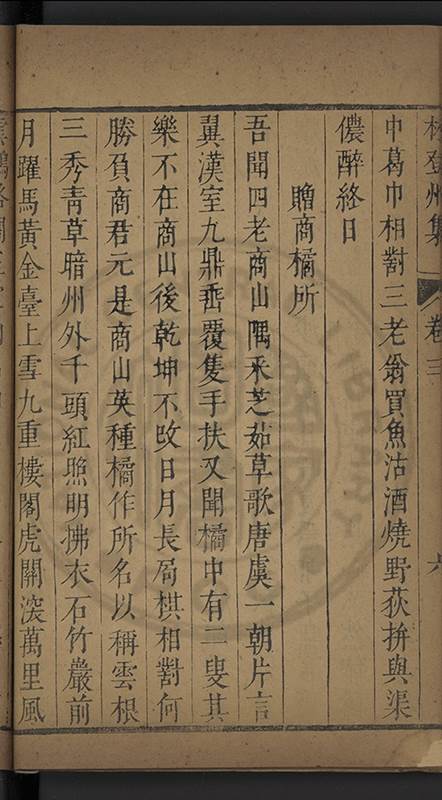 林登州集 卷三 六
中葛巾相對三老翁買魚沽酒燒野荻拚與渠
儂醉終日
贈商橘所
吾聞四老商山隅采芝茹草歌唐虞一朝片言
翼漢室九鼎垂覆隻手扶又聞橘中有二叟其
樂不在商山後乾坤不改日月長局棋相對何
勝負商君元是商山英種橘作所名以稱雲根
三秀青草暗州外千頭紅照明拂衣石竹巖前
月躍馬黃金臺上雪九重樓閣虎關深萬里風